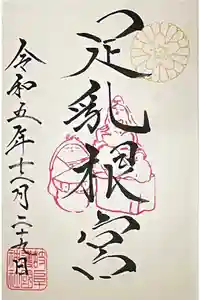 足乳根宮
令和五年十一月二十九日